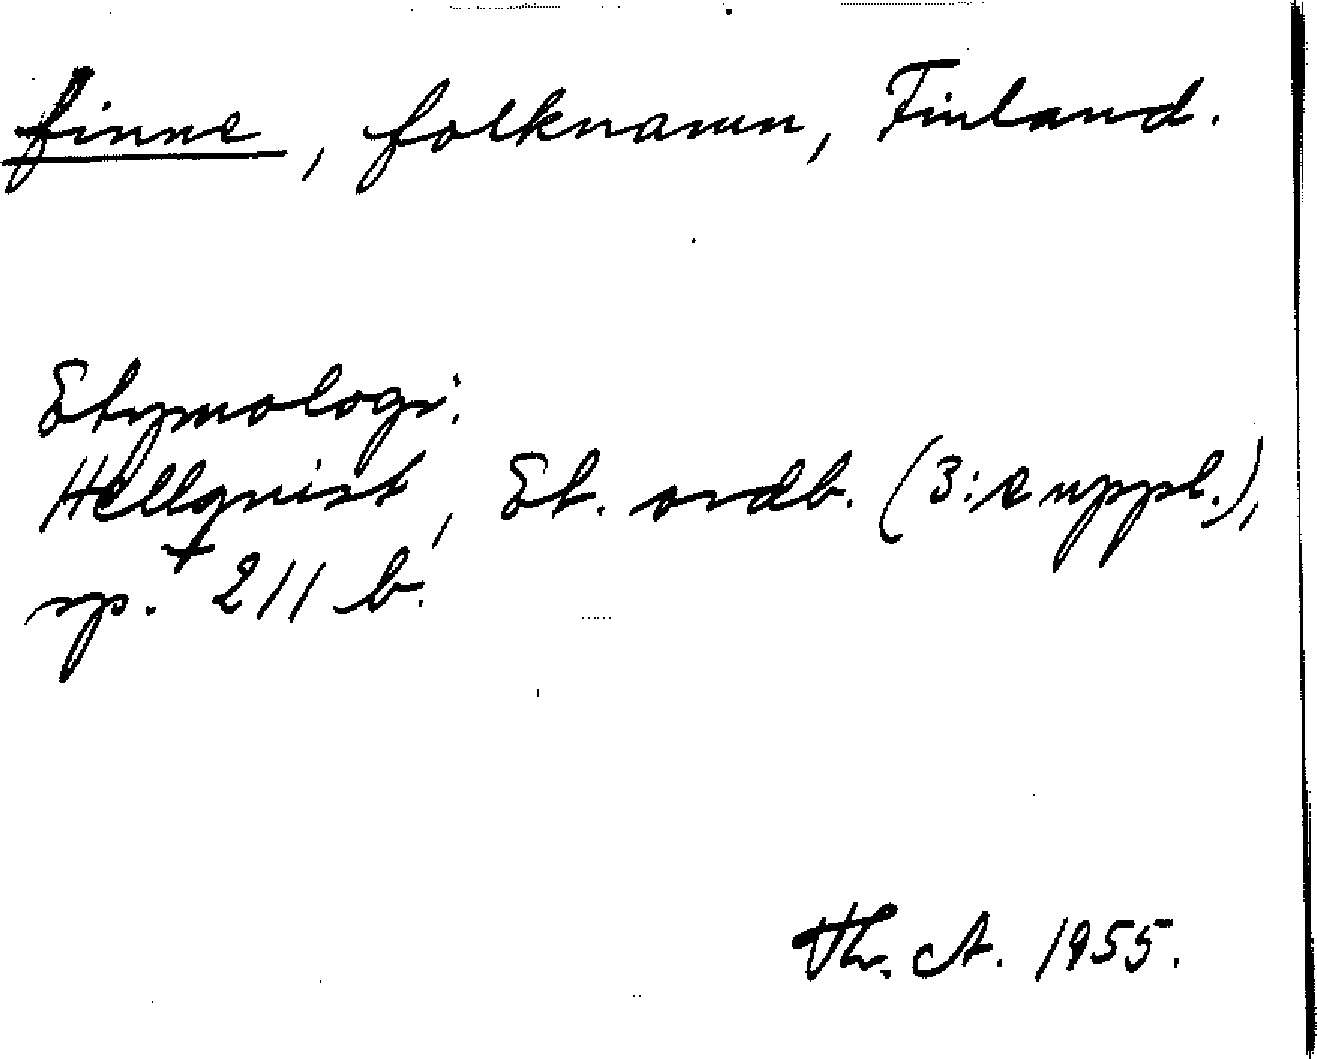 finne, folknamn, Finland.
Etymologi:
Hellquist, Et. ordb. (3:e uppl.),
sp. 211 b.
Th. A. 1955.